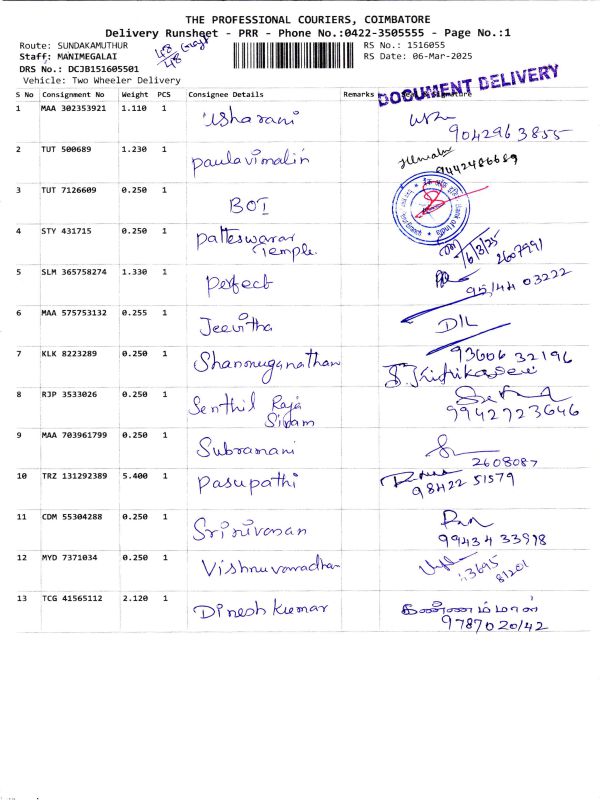 THE PROFESSIONAL COURIERS, COIMBATORE
Delivery Runsheet - PRR - Phone No.:0422-3505555 - Page No.:1
Route: SUNDAKAMUTHUR
RS No.: 1516055
Staff: MANIMEGALAI
48/48
RS Date: 06-Mar-2025
DRS No.: DCJB151605501
Vehicle: Two Wheeler Delivery
DOCUMENT DELIVERY
S No Consignment No Weight PCS Consignee Details Remarks
1 MAA 302353921 1.110 1 Usharani
9042963855
2 TUT 500689 1.230 1 paulavimalin
9442486689
3 TUT 7126609 0.250 1 BOI
4 STY 431715 0.250 1 patteswarar
Temple.
6/3/25
2607991
5 SLM 365758274 1.330 1 perfect
95144 03222
6 MAA 575753132 0.255 1 Jeevitha D/L
7 KLK 8223289 0.250 1 Shanmuganathan 93606 32196
8 RJP 3533026 0.250 1 Senthil Raja
Sivam
9942723646
9 MAA 703961799 0.250 1 Subramani
2608087
10 TRZ 131292389 5.400 1 Pasupathi
98422 51579
11 CDM 55304288 0.250 1 Srinivasan
99434 33998
12 MYD 7371034 0.250 1 Vishnuvaradhan
81201
13 TCG 41565112 2.120 1 Dinesh Kumar கண்ணம்மாள்
9787020142